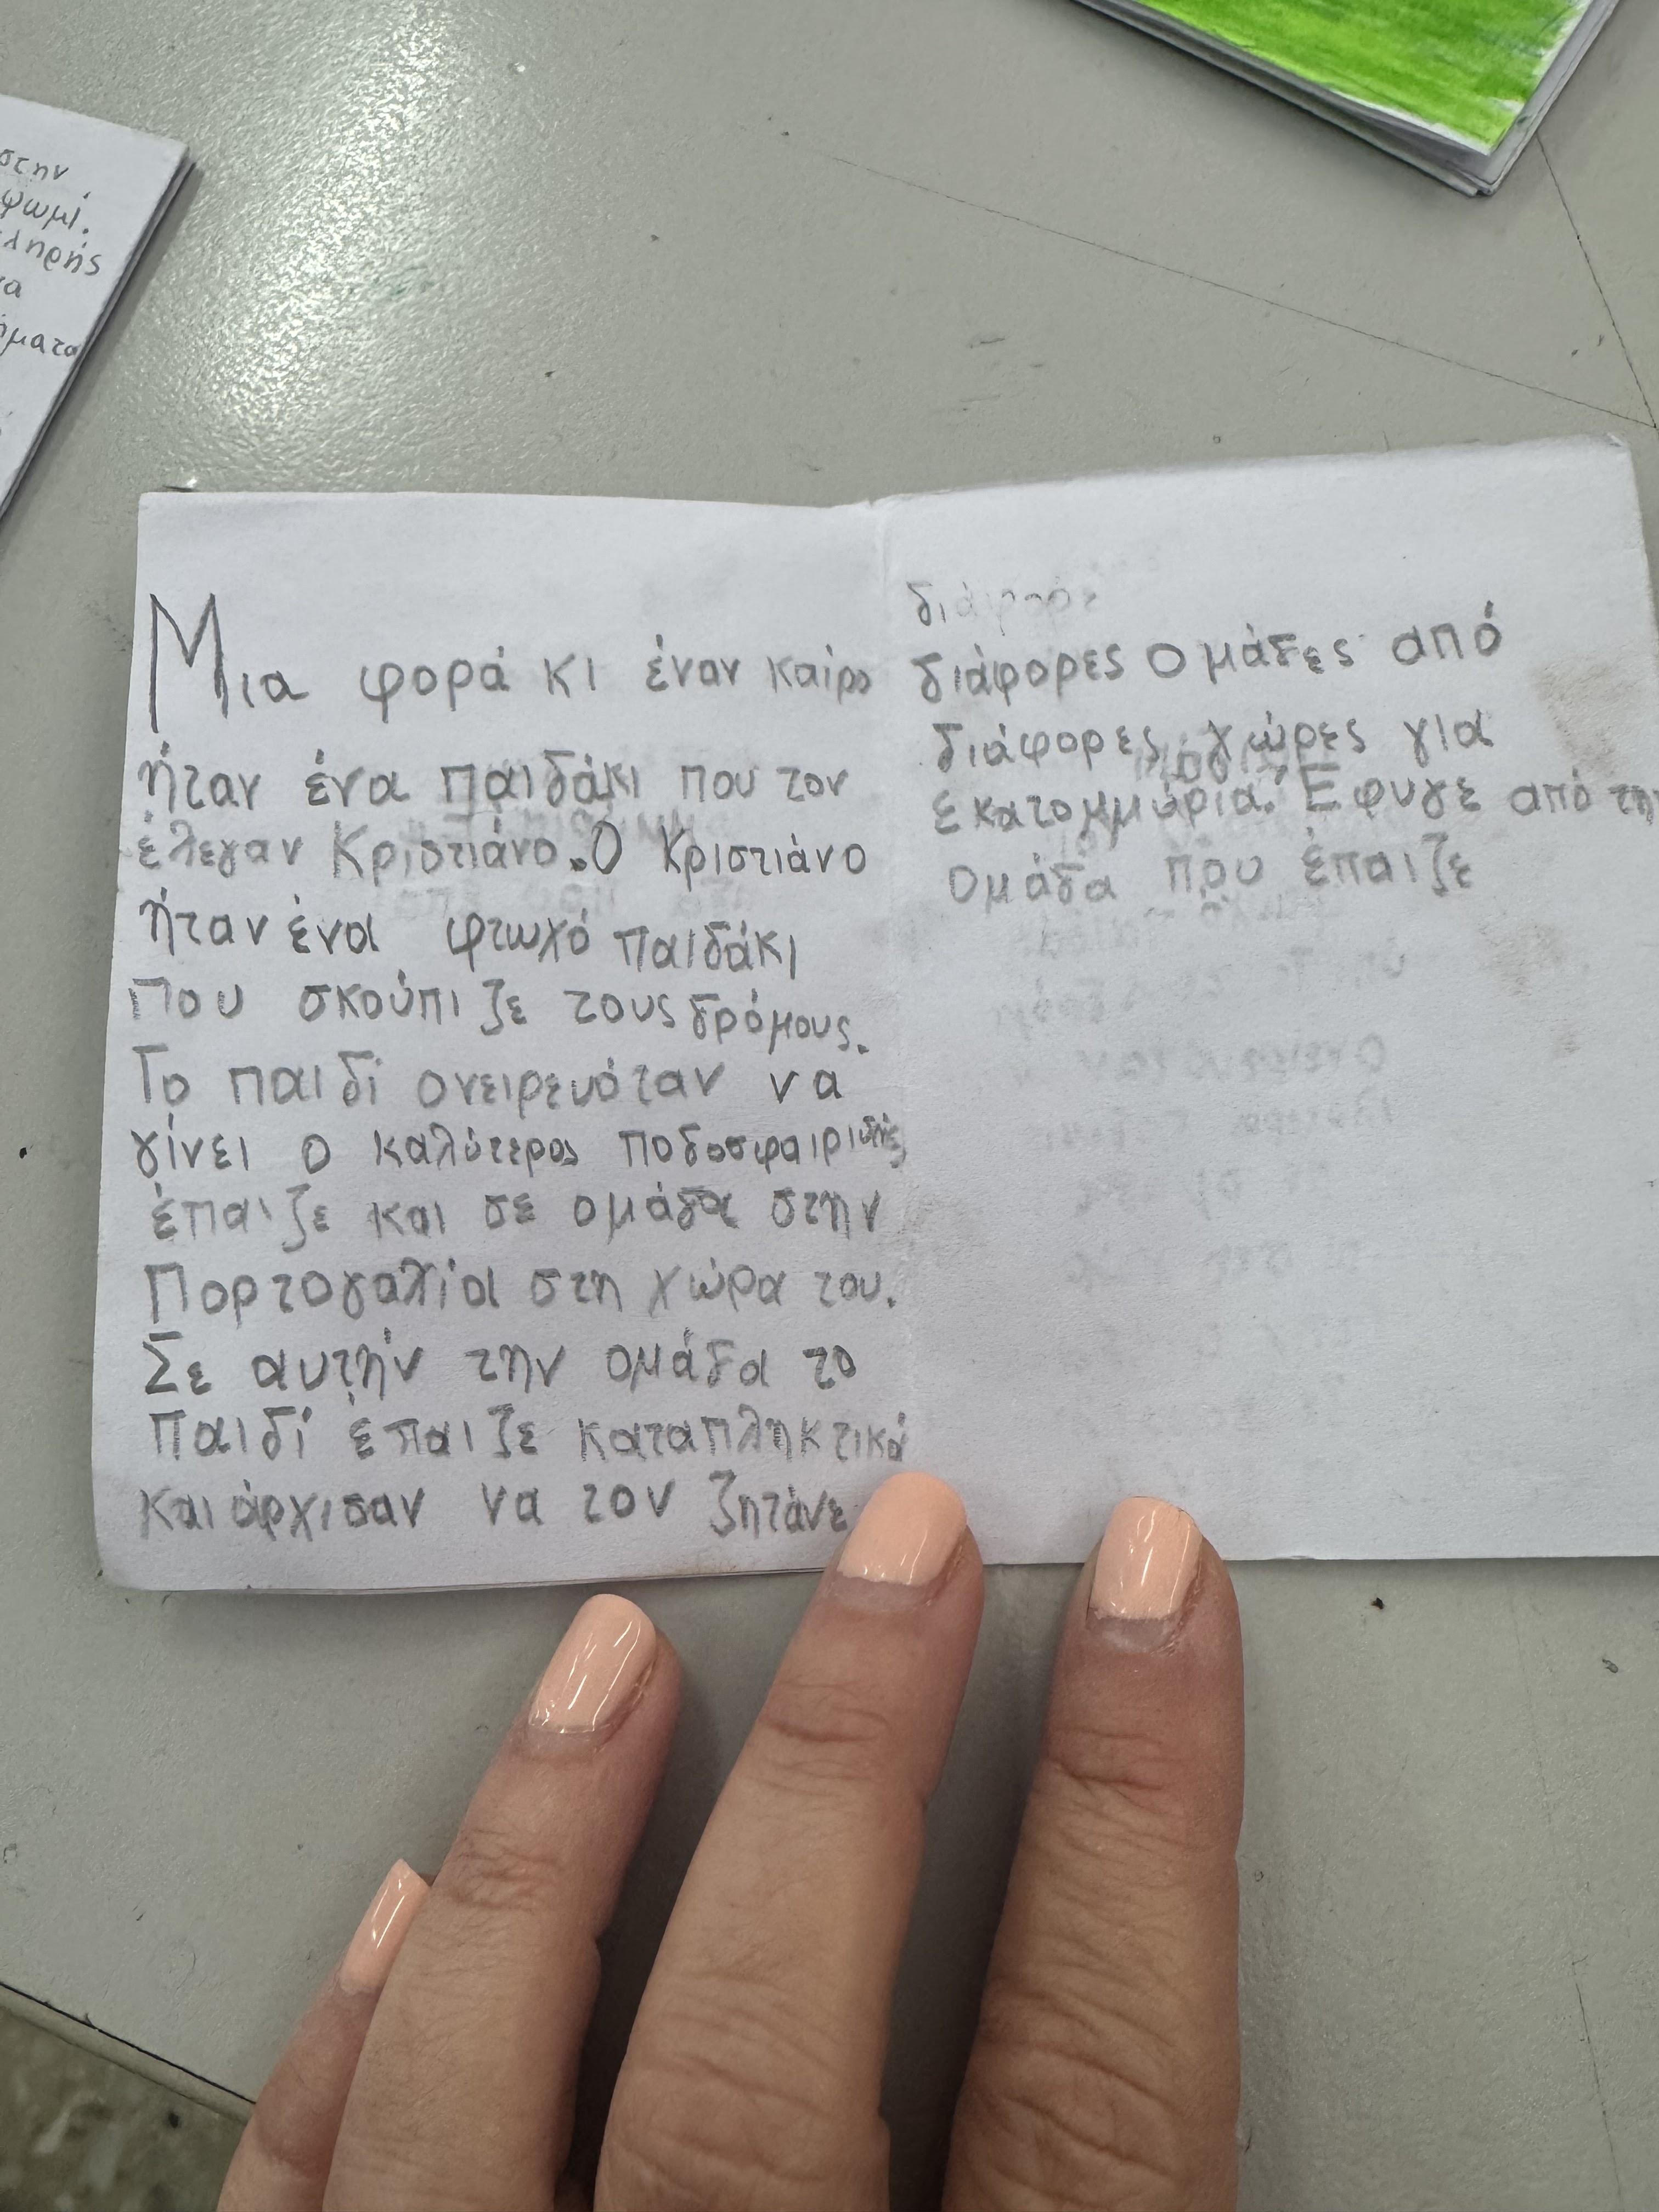 στην
ψωμί.
Μια φορά κι έναν καίρο
ήταν ένα παιδάκι που τον
έλεγαν Κριστιάνο. Ο Κριστιάνο
ήταν ένα φτωχό παιδάκι
που σκούπιζε τους δρόμους.
Το παιδί ονειρευόταν να
γίνει ο καλύτερος ποδοσφαιριστής
έπαιζε και σε ομάδα στην
Πορτογαλία στη χώρα του.
Σε αυτήν την ομάδα το
παιδί έπαιζε καταπληκτικά
και άρχισαν να τον ζητάνε
διάφορες ομάδες από
διάφορες χώρες για
εκατομμύρια. Έφυγε από την
ομάδα που έπαιζε